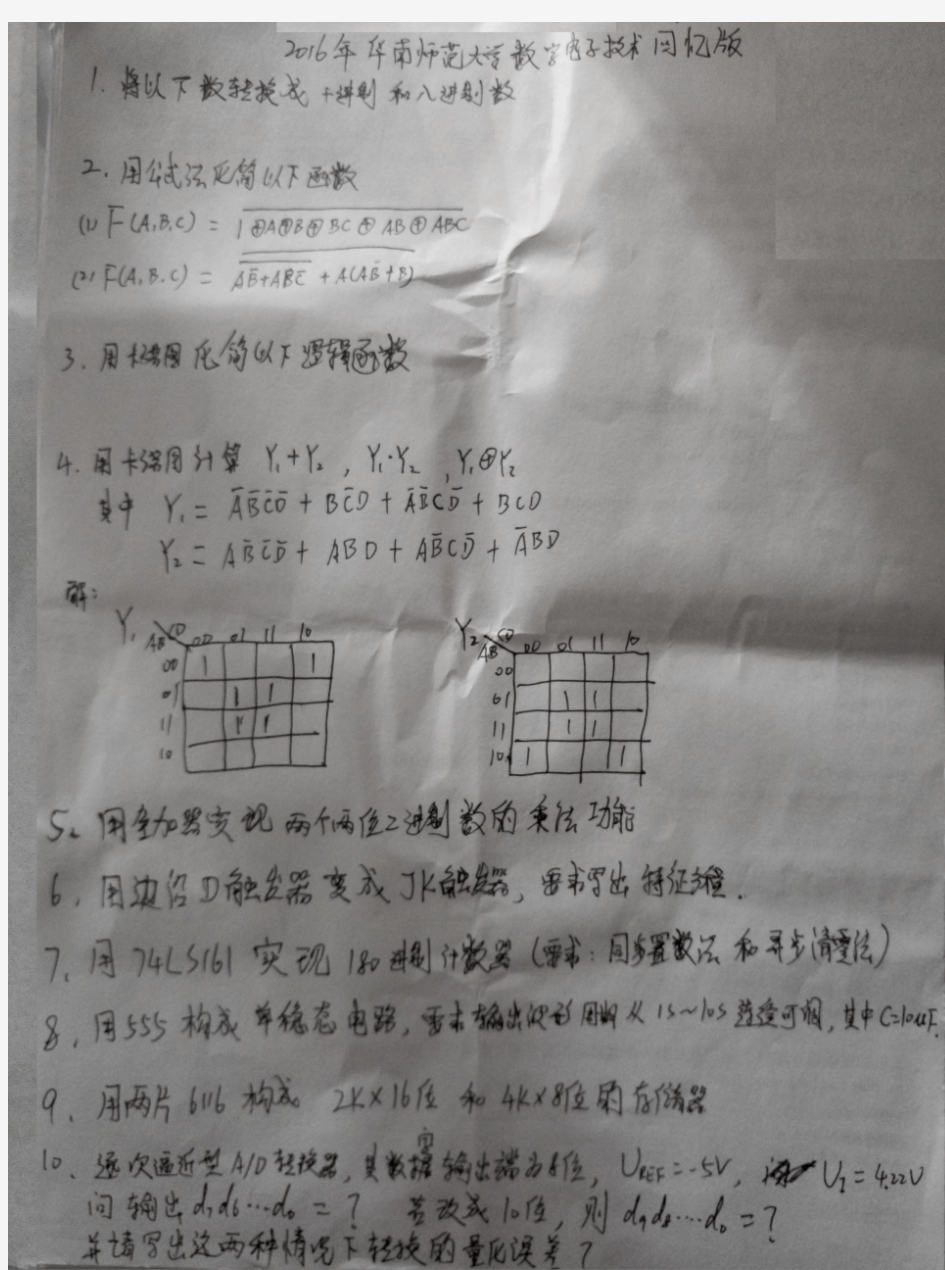 2016年华南师范大学数字电子技术回忆版
1. 将以下数转换成十进制和八进制数
2. 用公式法化简以下函数
(1) F(A,B,C) = \overline{1⊕A⊕B⊕BC⊕AB⊕ABC}
(2) F(A,B,C) = \overline{\overline{AB̄+ABC̄}+A(AB̄+B)}
3. 用卡诺图化简以下逻辑函数
4. 用卡诺图计算 Y₁+Y₂ , Y₁·Y₂ , Y₁⊕Y₂
其中 Y₁ = ĀB̄C̄D̄ + BC̄D + ĀB̄CD̄ + BCD
Y₂ = AB̄C̄D̄ + ABD + AB̄CD̄ + ĀBD
解:
Y₁ CD AB 00 01 11 10
00 1 1
01 1 1
11 1 1
10
Y₂ CD AB 00 01 11 10
00
01 1 1
11 1 1
10 1 1
5. 用全加器实现两个两位二进制数的乘法功能
6. 用边沿D触发器变成JK触发器, 要求写出特征方程.
7. 用74LS161实现180进制计数器 (要求: 同步置数法和异步清零法)
8. 用555构成单稳态电路, 要求输出波形周期从1s~10s连续可调, 其中C=10μF.
9. 用两片6116构成 2K×16位 和 4K×8位的存储器
10. 逐次逼近型A/D转换器, 其数据输出端为8位, U_REF=-5V, U_I=4.22V
问输出d₇d₆…d₀=? 若改成10位, 则d₉d₈…d₀=?
并请写出这两种情况下转换的量化误差?